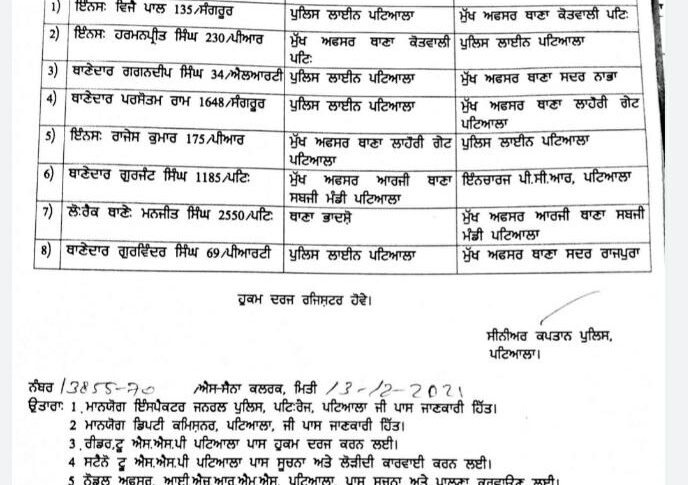 1) ਇੰਨਸ: ਵਿਜੈ ਪਾਲ 135/ਸੰਗਰੂਰ ਪੁਲਿਸ ਲਾਈਨ ਪਟਿਆਲਾ ਮੁੱਖ ਅਫਸਰ ਥਾਣਾ ਕੋਤਵਾਲੀ ਪਟਿ:
2) ਇੰਨਸ: ਹਰਮਨਪ੍ਰੀਤ ਸਿੰਘ 230/ਪੀਆਰ ਮੁੱਖ ਅਫਸਰ ਥਾਣਾ ਕੋਤਵਾਲੀ ਪੁਲਿਸ ਲਾਈਨ ਪਟਿਆਲਾ
ਪਟਿ:
3) ਥਾਣੇਦਾਰ ਗਗਨਦੀਪ ਸਿੰਘ 34/ਐਲਆਰਟੀ ਪੁਲਿਸ ਲਾਈਨ ਪਟਿਆਲਾ ਮੁੱਖ ਅਫਸਰ ਥਾਣਾ ਸਦਰ ਨਾਭਾ
4) ਥਾਣੇਦਾਰ ਪਰਸੋਤਮ ਰਾਮ 1648/ਸੰਗਰੂਰ ਪੁਲਿਸ ਲਾਈਨ ਪਟਿਆਲਾ ਮੁੱਖ ਅਫਸਰ ਥਾਣਾ ਲਾਹੋਰੀ ਗੇਟ
ਪਟਿਆਲਾ
5) ਇੰਨਸ: ਰਾਜੇਸ ਕੁਮਾਰ 175/ਪੀਆਰ ਮੁੱਖ ਅਫਸਰ ਥਾਣਾ ਲਾਹੋਰੀ ਗੇਟ ਪੁਲਿਸ ਲਾਈਨ ਪਟਿਆਲਾ
ਪਟਿਆਲਾ
6) ਥਾਣੇਦਾਰ ਗੁਰਜੰਟ ਸਿੰਘ 1185/ਪਟਿ: ਮੁੱਖ ਅਫਸਰ ਆਰਜੀ ਥਾਣਾ ਇੰਨਚਾਰਜ ਪੀ.ਸੀ.ਆਰ, ਪਟਿਆਲਾ
ਸਬਜੀ ਮੰਡੀ ਪਟਿਆਲਾ
7) ਲੋ:ਰੈਕ ਥਾਣੇ: ਮਨਜੀਤ ਸਿੰਘ 2550/ਪਟਿ: ਥਾਣਾ ਭਾਦਸੋਂ ਮੁੱਖ ਅਫਸਰ ਆਰਜੀ ਥਾਣਾ ਸਬਜੀ
ਮੰਡੀ ਪਟਿਆਲਾ
8) ਥਾਣੇਦਾਰ ਗੁਰਵਿੰਦਰ ਸਿੰਘ 69/ਪੀਆਰਟੀ ਪੁਲਿਸ ਲਾਈਨ ਪਟਿਆਲਾ ਮੁੱਖ ਅਫਸਰ ਥਾਣਾ ਸਦਰ ਰਾਜਪੁਰਾ
ਹੁਕਮ ਦਰਜ ਰਜਿਸ਼ਟਰ ਹੋਵੇ।
ਸੀਨੀਅਰ ਕਪਤਾਨ ਪੁਲਿਸ,
ਪਟਿਆਲਾ।
ਨੰਬਰ 13855-70 /ਐਸ-ਸੈਨਾ ਕਲਰਕ, ਮਿਤੀ 13-12-2021
ਉਤਾਰਾ: 1. ਮਾਨਯੋਗ ਇੰਸਪੈਕਟਰ ਜਨਰਲ ਪੁਲਿਸ, ਪਟਿ:ਰੇਜ, ਪਟਿਆਲਾ ਜੀ ਪਾਸ ਜਾਣਕਾਰੀ ਹਿੱਤ।
2 ਮਾਨਯੋਗ ਡਿਪਟੀ ਕਮਿਸ਼ਨਰ, ਪਟਿਆਲਾ, ਜੀ ਪਾਸ ਜਾਣਕਾਰੀ ਹਿੱਤ।
3 .ਰੀਡਰ,ਟੂ ਐਸ.ਐਸ.ਪੀ ਪਟਿਆਲਾ ਪਾਸ ਹੁਕਮ ਦਰਜ ਕਰਨ ਲਈ।
4 ਸਟੈਨੋ ਟੂ ਐਸ.ਐਸ.ਪੀ ਪਟਿਆਲਾ ਪਾਸ ਸੂਚਨਾ ਅਤੇ ਲੋੜੀਦੀ ਕਾਰਵਾਈ ਕਰਨ ਲਈ।
5 ਨੋਡਲ ਅਫਸਰ, ਆਈ.ਐਚ.ਆਰ.ਐਮ.ਐਸ. ਪਟਿਆਲਾ, ਪਾਸ ਸੂਚਨਾ ਅਤੇ ਪਾਲਣਾ ਕਰਵਾਉਣ ਲਈ।